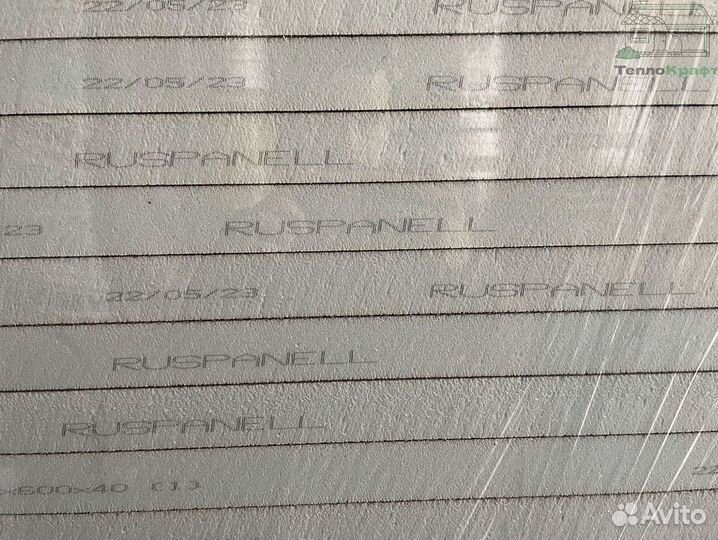 22/05/23 RUSPANELL
ТеплоКрафт
22/05/23 RUSPANELL
RUSPANELL
23 RUSPANELL
22/05/23 RUSPANELL
RUSPANELL
RUSPANELL
x600x40 (1) 22
Avito